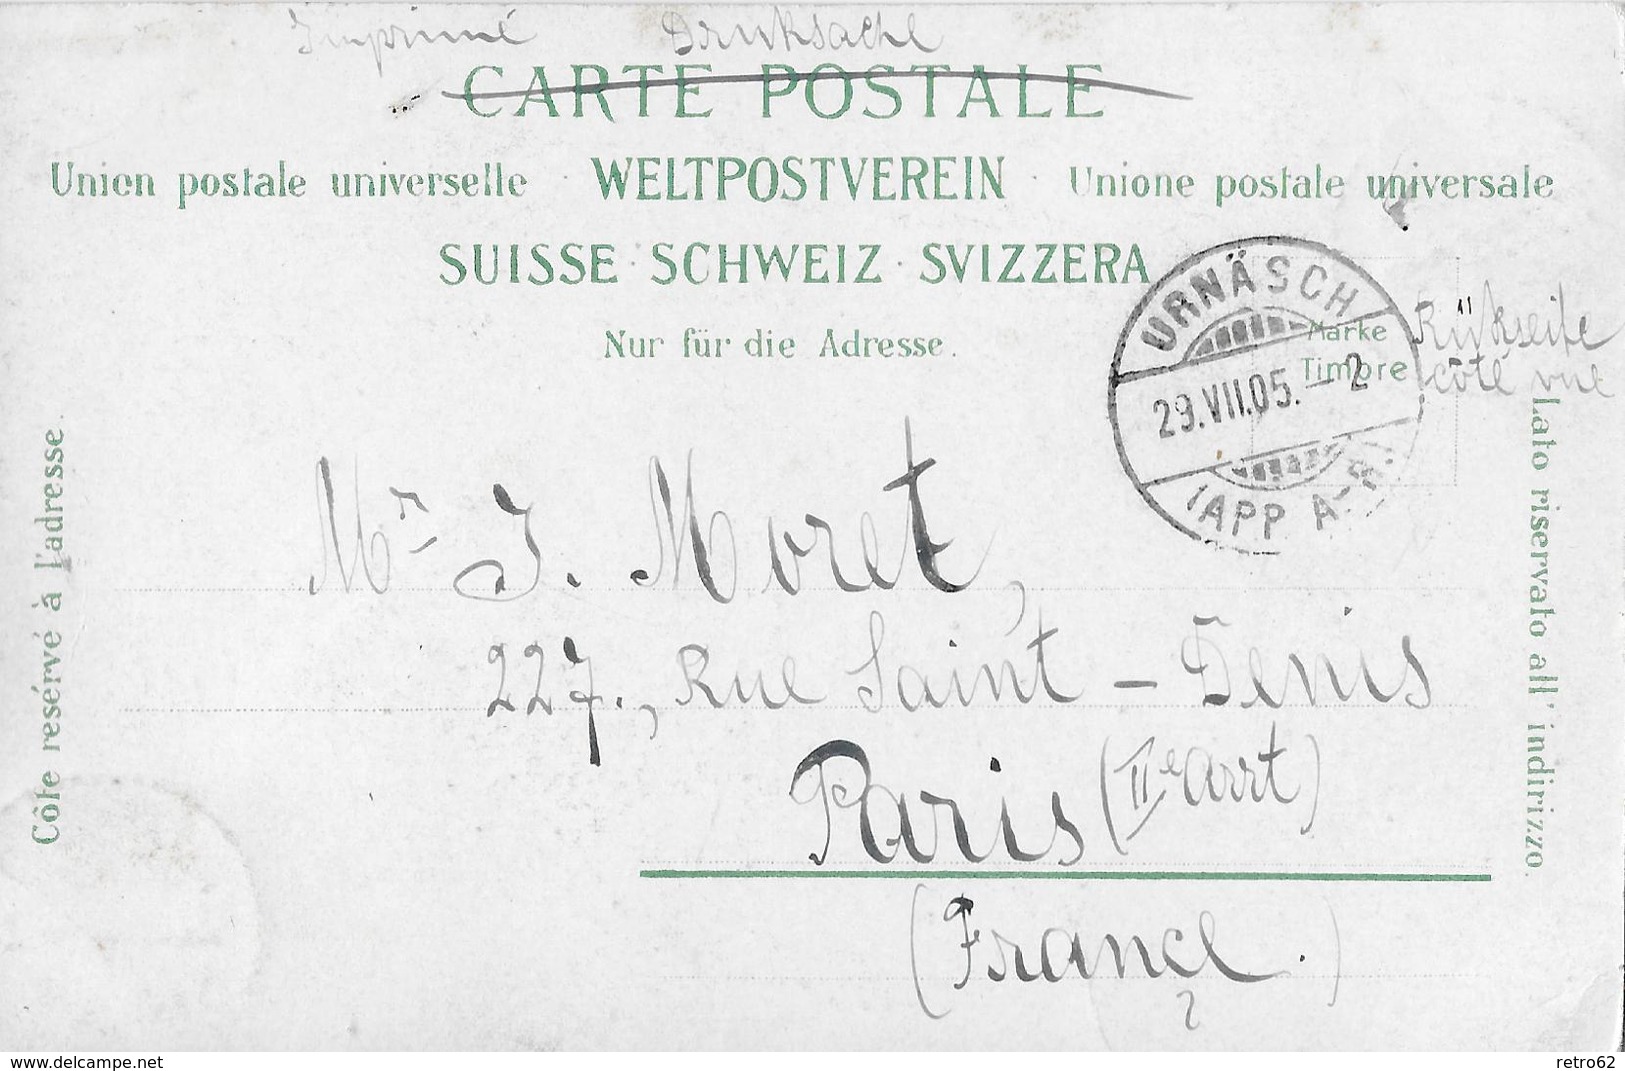 Imprimé Druksache
CARTE POSTALE
Union postale universelle · WELTPOSTVEREIN · Unione postale universale
SUISSE · SCHWEIZ · SVIZZERA
Nur für die Adresse.
URNÄSCH
29.VII.05.–2
(APP A-R.)
Marke
Timbre
Rükseite
côté vue
Côté reservé à l'adresse.
Lato riservato all' indirizzo.
Mr J. Moret,
227., Rue Saint-Denis
Paris (IIe arrt)
(France.)
www.delcampe.net
retro62